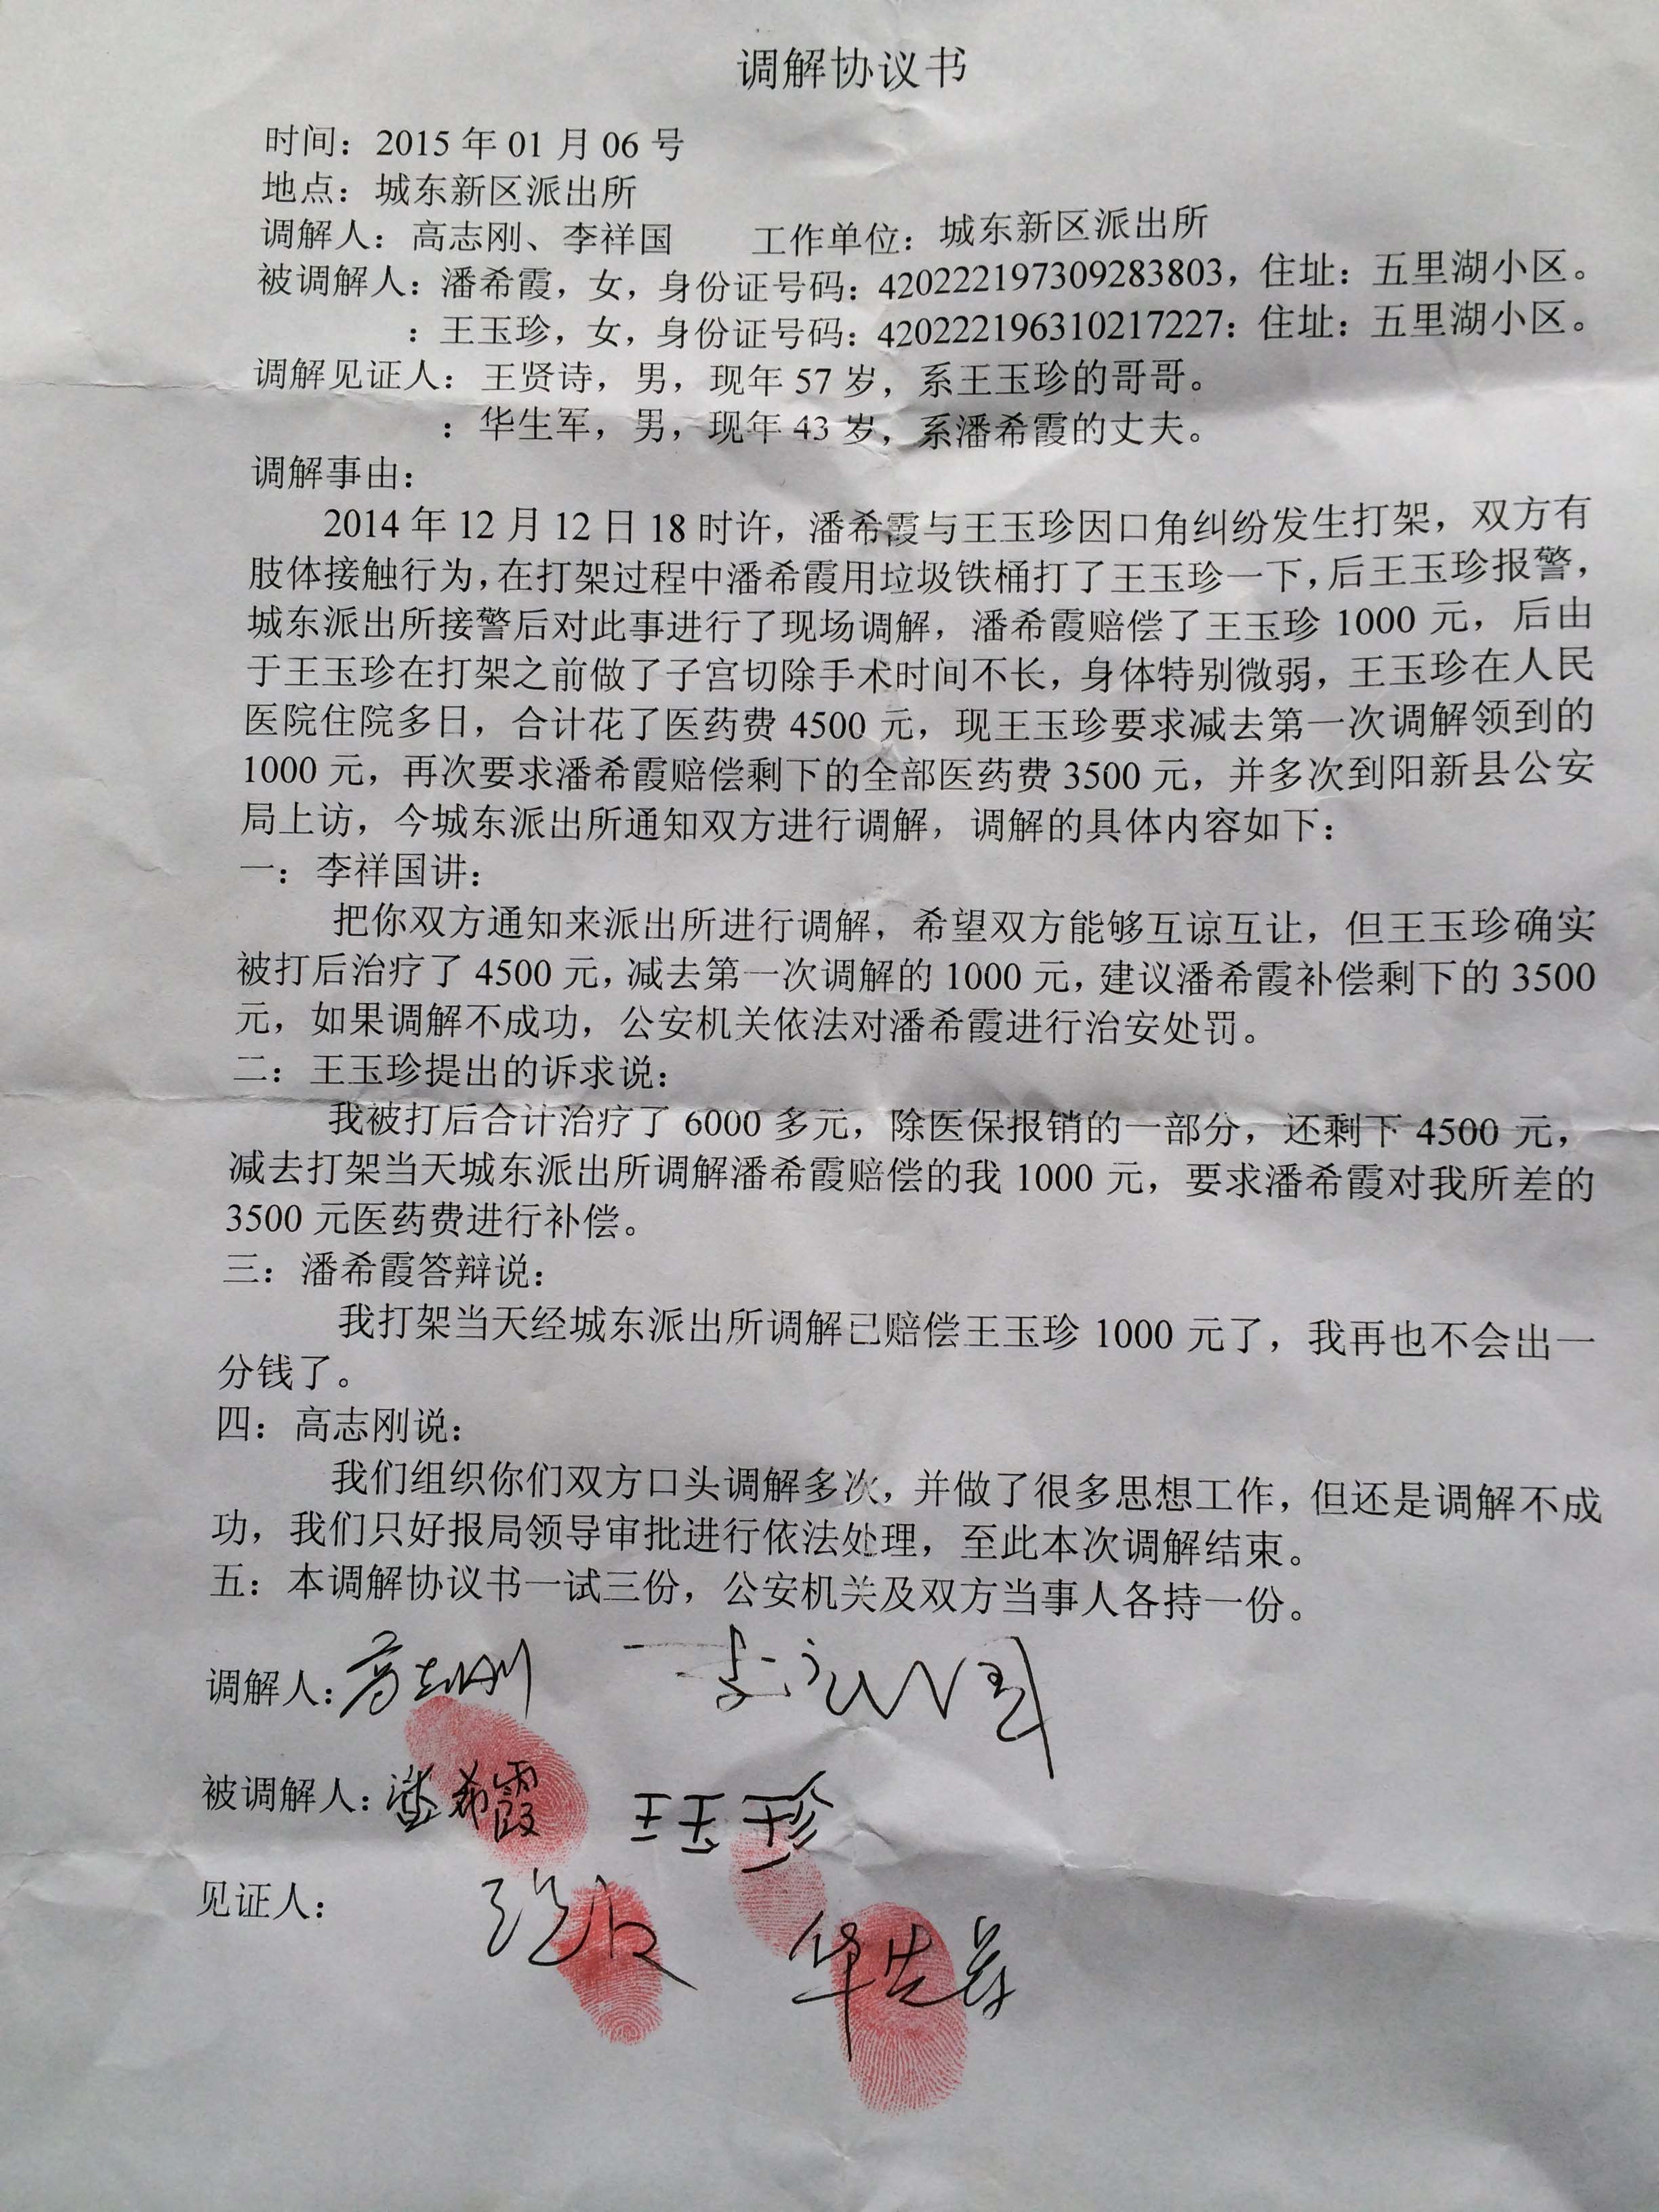 调解协议书
时间：2015 年 01 月 06 号
地点：城东新区派出所
调解人：高志刚、李祥国 工作单位：城东新区派出所
被调解人：潘希霞，女，身份证号码：420222197309283803，住址：五里湖小区。
：王玉珍，女，身份证号码：420222196310217227：住址：五里湖小区。
调解见证人：王贤诗，男，现年 57 岁，系王玉珍的哥哥。
：华生军，男，现年 43 岁，系潘希霞的丈夫。
调解事由：
2014 年 12 月 12 日 18 时许，潘希霞与王玉珍因口角纠纷发生打架，双方有
肢体接触行为，在打架过程中潘希霞用垃圾铁桶打了王玉珍一下，后王玉珍报警，
城东派出所接警后对此事进行了现场调解，潘希霞赔偿了王玉珍 1000 元，后由
于王玉珍在打架之前做了子宫切除手术时间不长，身体特别微弱，王玉珍在人民
医院住院多日，合计花了医药费 4500 元，现王玉珍要求减去第一次调解领到的
1000 元，再次要求潘希霞赔偿剩下的全部医药费 3500 元，并多次到阳新县公安
局上访，今城东派出所通知双方进行调解，调解的具体内容如下：
一：李祥国讲：
把你双方通知来派出所进行调解，希望双方能够互谅互让，但王玉珍确实
被打后治疗了 4500 元，减去第一次调解的 1000 元，建议潘希霞补偿剩下的 3500
元，如果调解不成功，公安机关依法对潘希霞进行治安处罚。
二：王玉珍提出的诉求说：
我被打后合计治疗了 6000 多元，除医保报销的一部分，还剩下 4500 元，
减去打架当天城东派出所调解潘希霞赔偿的我 1000 元，要求潘希霞对我所差的
3500 元医药费进行补偿。
三：潘希霞答辩说：
我打架当天经城东派出所调解已赔偿王玉珍 1000 元了，我再也不会出一
分钱了。
四：高志刚说：
我们组织你们双方口头调解多次，并做了很多思想工作，但还是调解不成
功，我们只好报局领导审批进行依法处理，至此本次调解结束。
五：本调解协议书一试三份，公安机关及双方当事人各持一份。
调解人：高志刚 李祥国
被调解人：潘希霞 王玉珍
见证人：
华生军